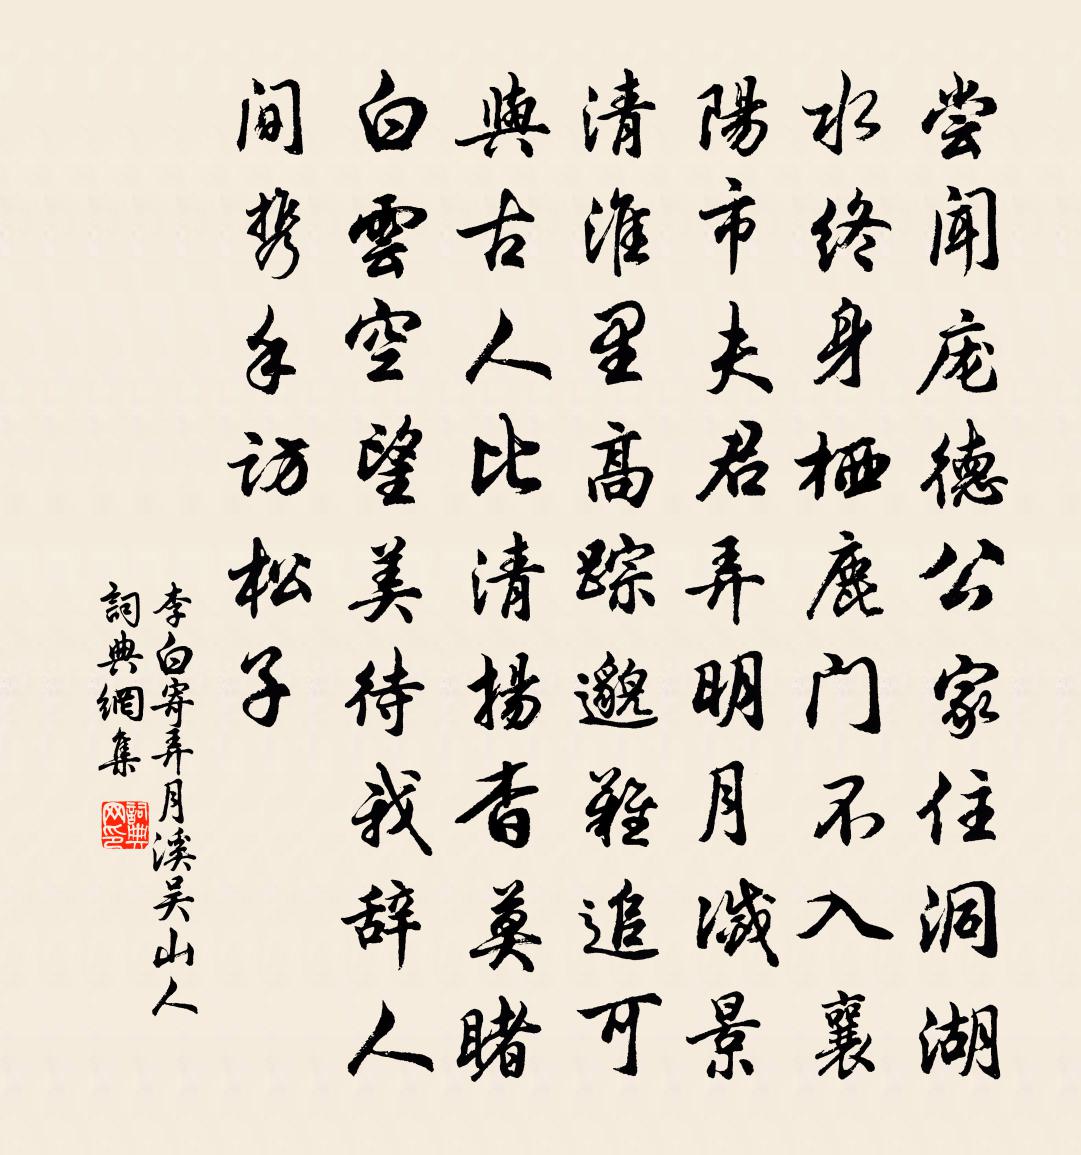 尝闻庞德公家住洞湖
水终身栖鹿门不入襄
陽市夫君弄明月滅景
清淮里高踪邈難追可
與古人比清揚杳莫睹
白雲空望美待我辞人
间携手访松子
李白寄弄月溪吴山人
詞典網集
詞典网印